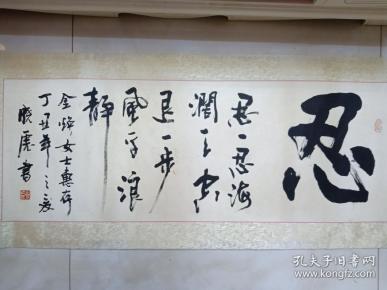 忍
忍一忍海
阔天空
退一步
风平浪
静
女士惠存
丁丑年之夏
晓 书
孔夫子旧书网
www.kongfz.com